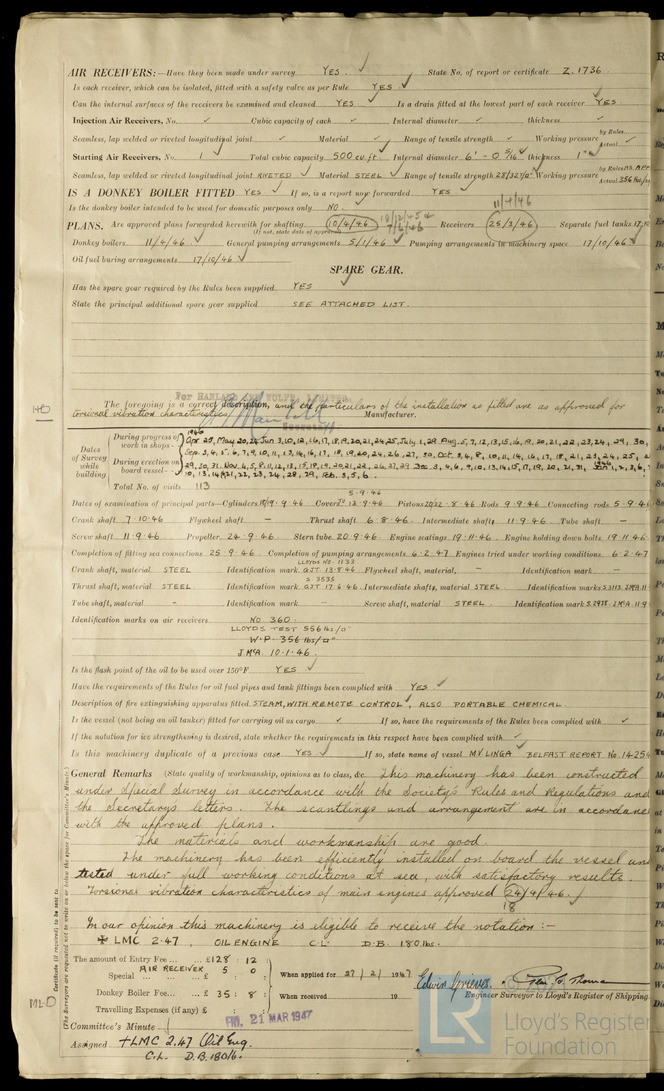 AIR RECEIVERS:—Have they been made under survey YES. ✓ State No. of report or certificate Z.1736.
Is each receiver, which can be isolated, fitted with a safety valve as per Rule YES ✓
Can the internal surfaces of the receivers be examined and cleaned YES. ✓ Is a drain fitted at the lowest part of each receiver YES ✓
Injection Air Receivers, No. ✓ Cubic capacity of each ✓ Internal diameter ✓ thickness ✓
Seamless, lap welded or riveted longitudinal joint ✓ Material ✓ Range of tensile strength ✓ Working pressure by Rules Actual ✓
Starting Air Receivers, No. 1 ✓ Total cubic capacity 500 cu.ft. ✓ Internal diameter 6'-0 5/16" ✓ thickness 1" ✓
Seamless, lap welded or riveted longitudinal joint RIVETED ✓ Material STEEL ✓ Range of tensile strength 28/32 T/□" ✓ Working pressure by Rules Actual 356
IS A DONKEY BOILER FITTED YES ✓ If so, is a report now forwarded YES ✓
Is the donkey boiler intended to be used for domestic purposes only NO. ✓ 11/4/46
PLANS. Are approved plans forwarded herewith for shafting 10/4/46 18/12/45 7/6/46 Receivers 25/3/46 Separate fuel tanks 17/10
(If not, state date of approval)
Donkey boilers 11/4/46 ✓ General pumping arrangements 5/1/46 ✓ Pumping arrangements in machinery space 17/10/46 ✓
Oil fuel buring arrangements 17/10/46 ✓
SPARE GEAR.
Has the spare gear required by the Rules been supplied YES ✓
State the principal additional spare gear supplied SEE ATTACHED LIST.
For HARLAND AND WOLFF LIMITED
The foregoing is a correct description, and the particulars of the installation as fitted are as approved for
torsional vibration characteristics Secretary Manufacturer.
Dates of Survey while building
During progress of work in shops - - 1946 Apr 29, May 20, 24 Jun 3, 10, 12, 16, 17, 18, 19, 20, 21, 24, 25, July 1, 29 Aug. 5, 7, 12, 13, 15, 16, 19, 20, 21, 22, 23, 24, 29, 30,
Sep. 3, 4, 5, 6, 7, 9, 10, 11, 13, 14, 16, 17, 18, 19, 20, 24, 26, 27, 30, Oct 3, 4, 8, 10, 11, 14, 16, 17, 18, 21, 23, 24, 25,
During erection on board vessel - - 29, 30, 31 Nov. 4, 5, 8, 11, 12, 13, 15, 18, 19, 20, 21, 22, 26, 27, 29 Dec 3, 4, 6, 9, 10, 13, 14, 15, 17, 19, 20, 21, 31, Jan 1, 2, 3, 6,
10, 13, 14, 21, 22, 23, 24, 28, 29, Feb. 3, 5, 6.
Total No. of visits 113
5.9.46
Dates of examination of principal parts—Cylinders 18/19.9.46 Covers 12.9.46 Pistons 20/22.8.46 Rods 9.9.46 Connecting rods 5.9.46
Crank shaft 7.10.46 Flywheel shaft – Thrust shaft 6.8.46. Intermediate shafts 11.9.46 Tube shaft –
Screw shaft 11.9.46 Propeller 24.9.46 Stern tube 20.9.46 Engine seatings 19.11.46 Engine holding down bolts 19.11.46
Completion of fitting sea connections 25.9.46 Completion of pumping arrangements 6.2.47 Engines tried under working conditions 6.2.47
LLOYDS NO. 1133
Crank shaft, material STEEL Identification mark GJT 13.8.46 Flywheel shaft, material – Identification mark –
S 3535
Thrust shaft, material STEEL Identification mark GJT 17.6.46 Intermediate shafts, material STEEL Identification mark S 3113 JMcA 11
Tube shaft, material – Identification mark – Screw shaft, material STEEL. Identification mark S.2975 JMcA 11.9
Identification marks on air receivers NO 360.
LLOYDS TEST 556 lbs/□"
W.P. 356 lbs/□"
J.McA. 10.1.46.
Is the flash point of the oil to be used over 150°F YES ✓
Have the requirements of the Rules for oil fuel pipes and tank fittings been complied with YES ✓
Description of fire extinguishing apparatus fitted STEAM, WITH REMOTE CONTROL ✓, ALSO PORTABLE CHEMICAL.
Is the vessel (not being an oil tanker) fitted for carrying oil as cargo ✓ If so, have the requirements of the Rules been complied with ✓
If the notation for ice strengthening is desired, state whether the requirements in this respect have been complied with ✓
Is this machinery duplicate of a previous case YES ✓ If so, state name of vessel M.V. LINGA ✓ BELFAST REPORT No. 14254
General Remarks (State quality of workmanship, opinions as to class, &c. This machinery has been constructed
under Special Survey in accordance with the Society's Rules and Regulations and
the Secretarys letters. The scantlings and arrangement are in accordance
with the approved plans.
The materials and workmanship are good.
The machinery has been efficiently installed on board the vessel and
tested under full working conditions at sea, with satisfactory results.
Torsional vibration characteristics of main engines approved 24/4/46.
18
In our opinion this machinery is eligible to receive the notation:–
✠ LMC 2.47, OIL ENGINE C.L. D.B. 180 lbs.
The amount of Entry Fee ... £128 : 12
AIR RECEIVER 5 0
Special ... ... £ : :
Donkey Boiler Fee... ... £ 35 : 8 :
Travelling Expenses (if any) £ : :
When applied for 27/2/1947
When received 19
Edwin Grieves.
Engineer Surveyor to Lloyd's Register of Shipping.
Committee's Minute FRI. 21 MAR 1947
Assigned +LMC 2.47 Oil Eng.
C.L. D.B. 180 lb.
(The Surveyors are requested not to write on or below the space for Committee's Minute.)
Certificate (if required) to be sent to
LR
Lloyd's Register
Foundation